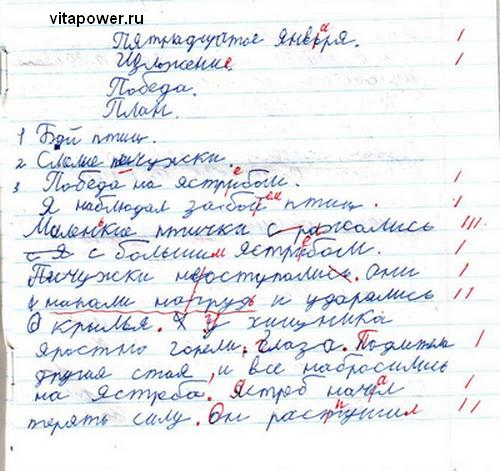 vitapower.ru
Пятнадцатое января.
Изложение.
Победа.
План.
1 Бой птиц.
2 Смелые пичужки.
3 Победа на ястрибом.
Я наблюдал за бой птиц.
Маленькие птички с ражались
с я с большим ястрибом.
Пичужки не оступались. Они
нападали на грудь и ударялись
О крылья. У хищника
яростно горели глаза. Подлетела
другая стая, и все набросились
на ястреба. Ястреб начал
терять силу. Он растушил